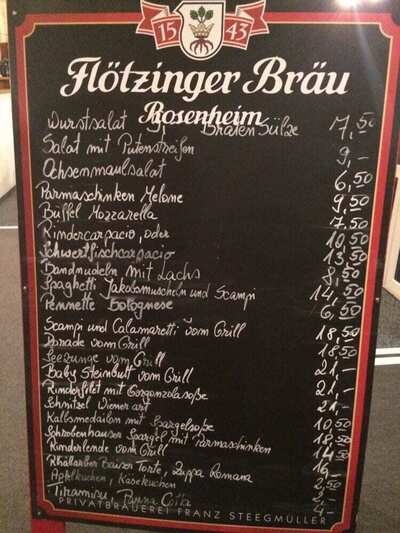 15 43
Flötzinger Bräu
Rosenheim
Wurstsalat Braten Sülze 7,50
Salat mit Putenstreifen 9,-
Ochsenmaulsalat 6,50
Parmaschinken Melone 9,50
Büffel Mozzarella 7,50
Rindercarpacio, oder 10,50
Schwertfischcarpacio 13,50
Bandnudeln mit Lachs 8,50
Spaghetti Jakobsmuscheln und Scampi 14,50
Pennette Bolognese 6,50
Scampi und Calamaretti vom Grill 18,50
Dorade vom Grill 18,50
Seezunge vom Grill 21,-
Baby Steinbutt vom Grill 21,-
Rinderfilet mit Gorgonzolasoße 21,-
Schnitzel Wiener art 10,50
Kalbsmedailon mit Spargelsoße 18,50
Schrobenhauser Spargel mit Parmaschinken 14,50
Rinderlende vom Grill 16,-
Rhabarber Baiser Torte, Zuppa Romana 2,50
Apfelkuchen, Käsekuchen 2,-
Tiramisu, Panna Cotta 4,-
PRIVATBRAUEREI FRANZ STEEGMÜLLER